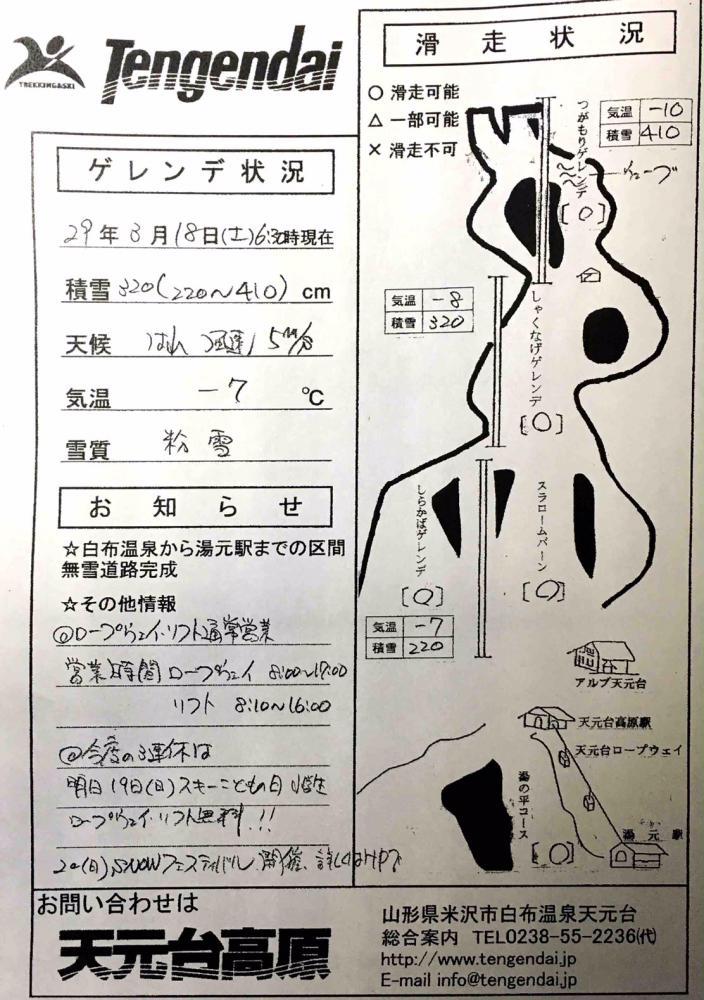 Tengendai
TREKKING&SKI
ゲレンデ状況
29年3月18日(土)6:30時現在
積雪 320(220～410)cm
天候 はれ 5m/s
気温 -7 ℃
雪質 粉雪
お知らせ
☆白布温泉から湯元駅までの区間
無雪道路完成
☆その他情報
◎ロープウェイ・リフト通常営業
営業時間 ロープウェイ 8:00～17:00
リフト 8:10～16:00
◎今度の3連休は
明日19日(日)スキーこどもの日 小学生
ロープウェイ・リフト無料!!
20(日)SNOWフェスティバル開催、詳しくはHPで
滑走状況
○ 滑走可能
△ 一部可能
× 滑走不可
気温 -10
積雪 410
つがもりゲレンデ
[○]
気温 -8
積雪 320
しゃくなげゲレンデ
[○]
しらかばゲレンデ
[○]
スラロームバーン
[○]
気温 -7
積雪 220
アルブ天元台
天元台高原駅
天元台ロープウェイ
湯の平コース
[○]
湯元駅
お問い合わせは
天元台高原
山形県米沢市白布温泉天元台
総合案内 TEL0238-55-2236(代)
http://www.tengendai.jp
E-mail info@tengendai.jp